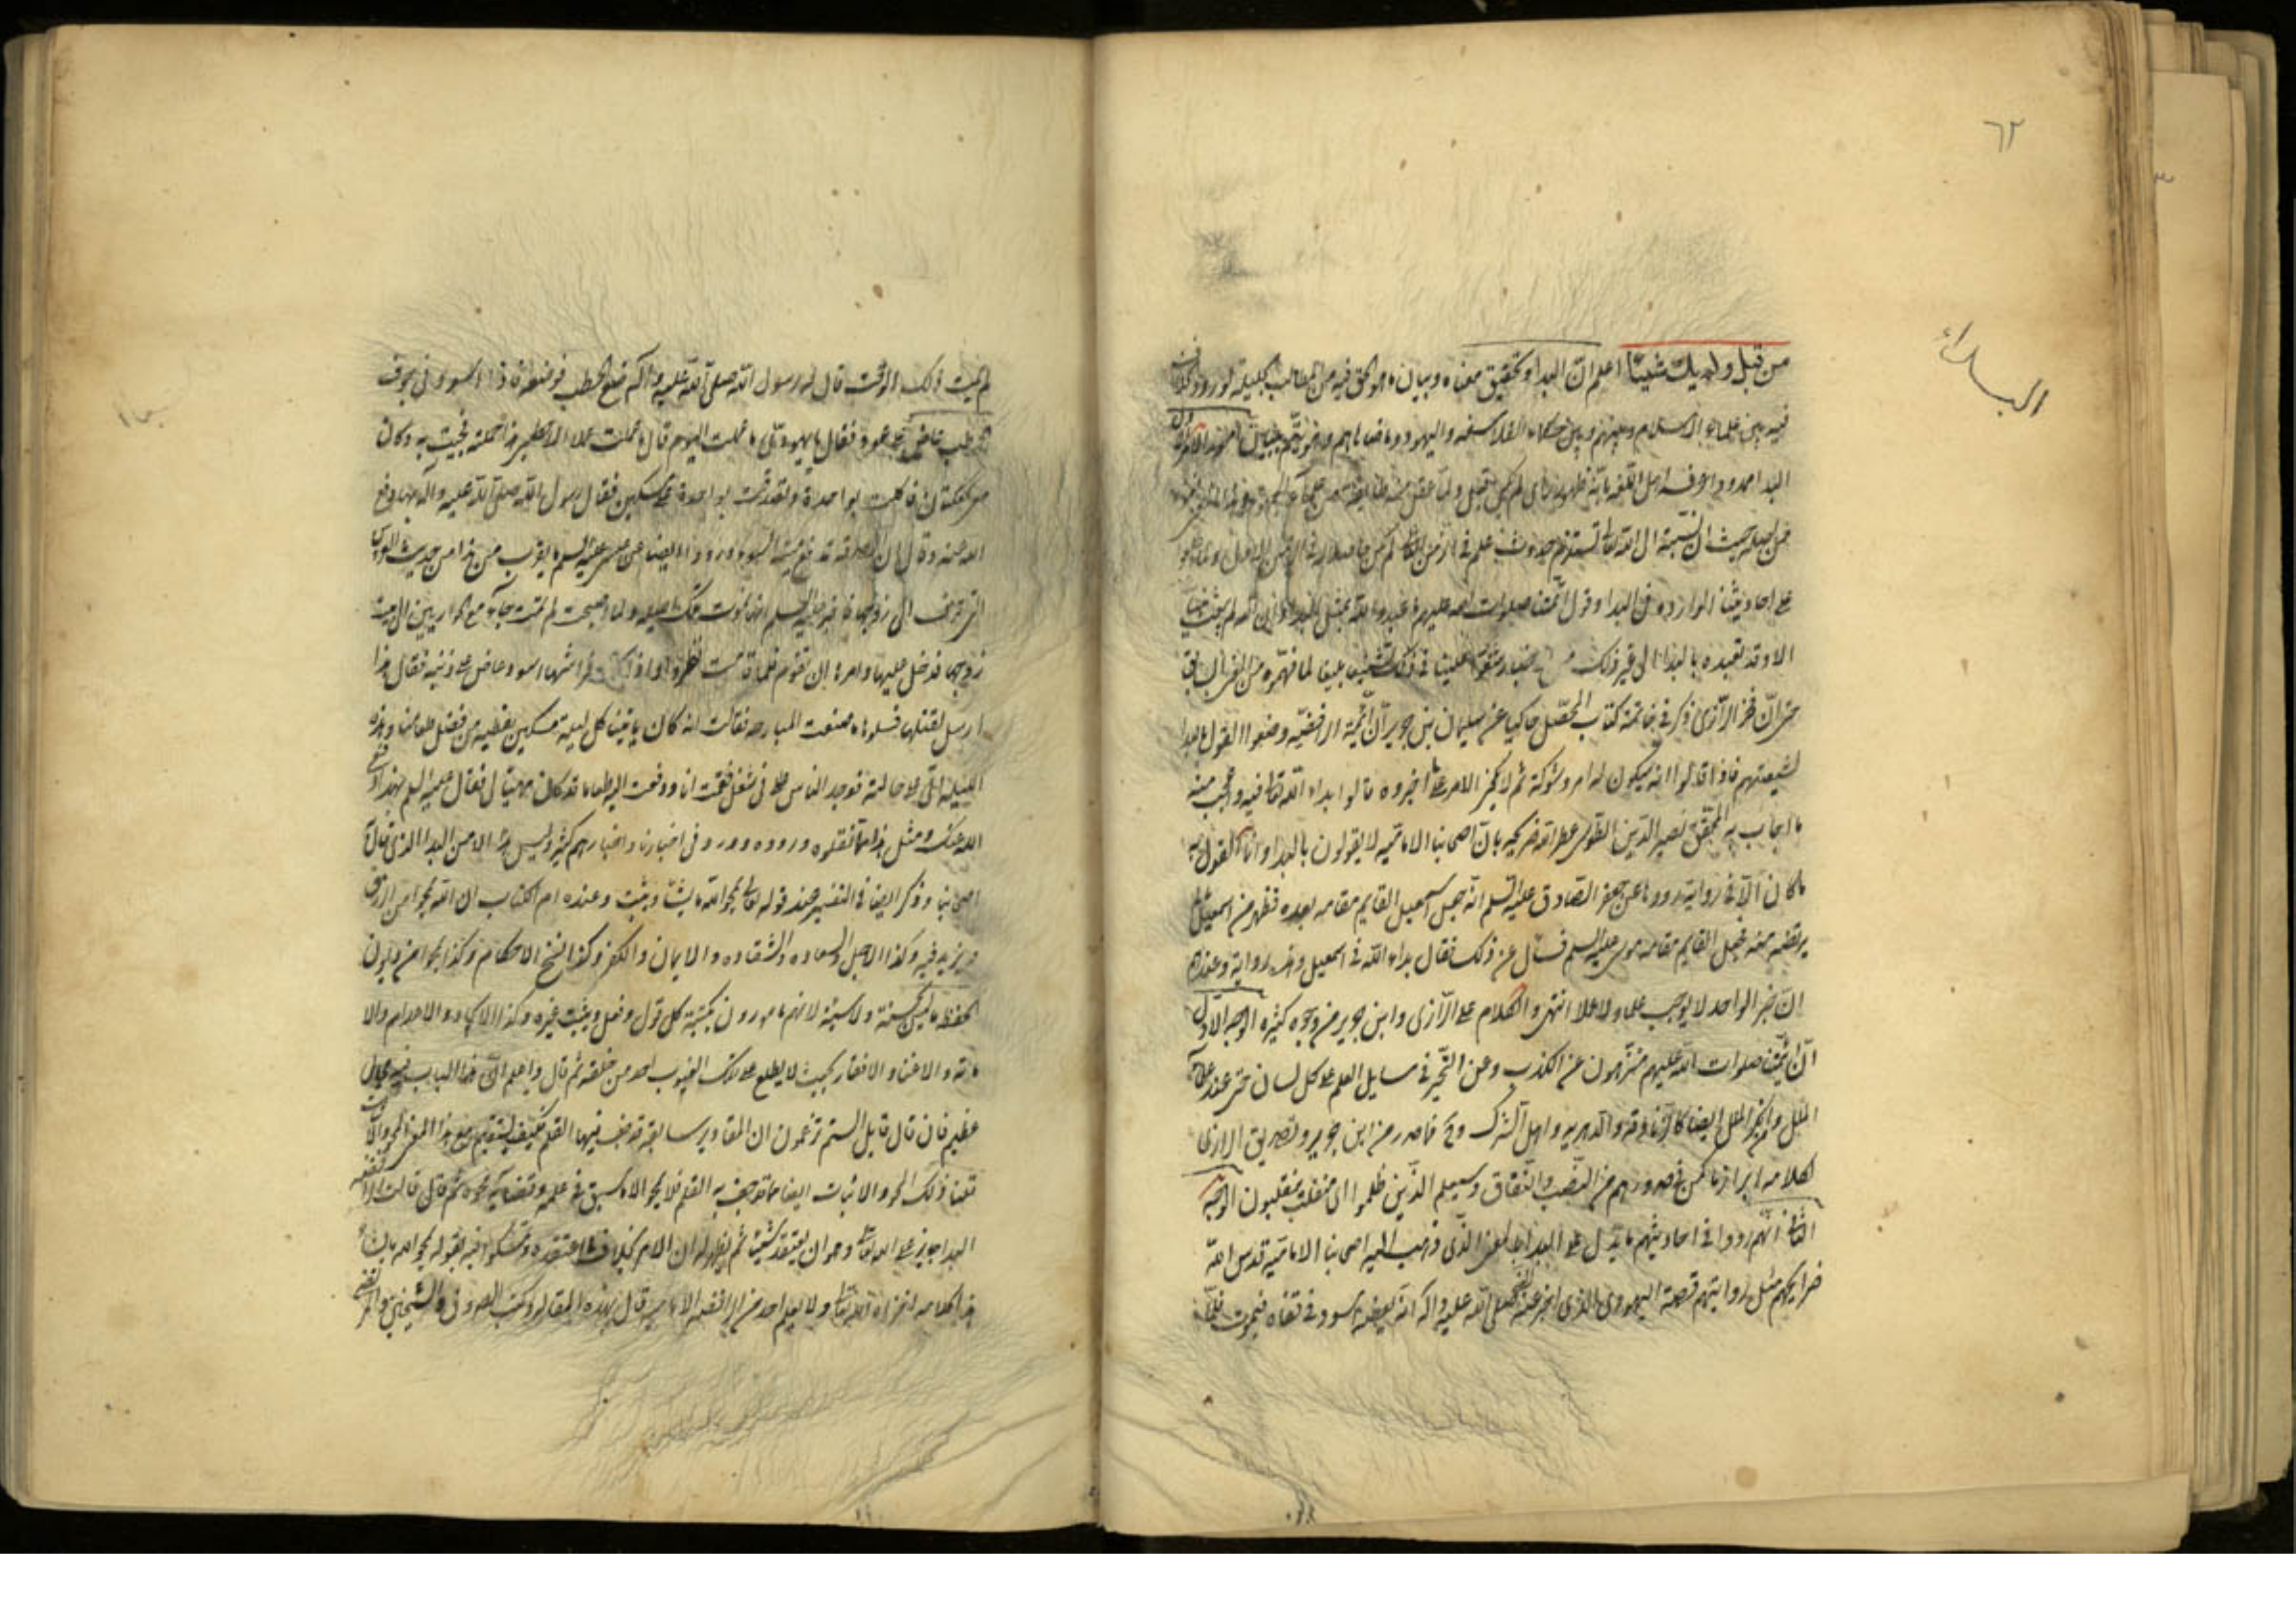 ٦٢
البداء
من قبل ولم يك شيئا اعلم ان البدا وتحقيق معناه وبيان ما هو الحق فيه من المطالب الجليلة لورود الخلاف
فيه بين علماء الاسلام وبينهم وبين حكماء الفلاسفة واليهود
البدا ممدودا عرفه اهل اللغة بانه ظهور راى لم يكن قبل
حيث ان نسبته الى الله تعالى تستلزم حدوث علم في الزمن الثاني لم يكن حاصلا له في الزمن الاول
على احاديثنا الواردة في البدا وقول ائمتنا صلوات الله عليهم ما عبد الله بمثل البدا وان الله لم يبعث نبيا
الا وقد تعبده بالبدا الى غير ذلك من الاخبار شنعوا علينا في ذلك تشنيعا بليغا لما فهموه من
حتى ان فخر الرازي ذكر في خاتمة كتاب المحصل حاكيا عن سليمان بن جرير ان ائمة الرافضة وضعوا القول بالبدا
لشيعتهم فاذا قالوا انه سيكون لهم امر وشوكة ثم لا يكون الامر على ما اخبروه قالوا بدا لله تعالى فيه واعجب منه
ما اجاب به المحقق نصير الدين الطوسي عطر الله ضريحه بان اصحابنا الامامية لا يقولون بالبدا وانما القول به
ما كان الا في رواية رووها عن جعفر الصادق عليه السلم انه جعل اسمعيل القايم مقامه بعده فظهر من اسمعيل ما لم
يرتضه منه فجعل القايم مقامه موسى عليه السلم فسئل عن ذلك فقال بدا لله في اسمعيل وهذه رواية وعندهم
ان خبر الواحد لا يوجب علما ولا عملا انتهى والكلام على الرازي وابن جرير من وجوه كثيرة الوجه الاول
ان ائمتنا صلوات الله عليهم منزهون عن الكذب وعن التحير في مسايل العلم على كل لسان حتى عند علماء
الملل واهل الملل ايضا كالزنادقة والدهرية واهل الشرك وح فما صدر من ابن جرير وتصديق الرازي
لكلامه ابراز ما كمن في صدورهم من النصب والنفاق وسيعلم الذين ظلموا اى منقلب ينقلبون الوجه
الثاني انهم رووا في احاديثهم ما يدل على البدا بالمعنى الذي ذهب اليه اصحابنا الامامية قدس الله
ضرايحهم مثل روايتهم قصة اليهودي الذي اخبر عنه النبي صلى الله عليه واله انه يعضه اسود في قفاه فيموت فلما
لم يمت ذلك الوقت قال له رسول الله صلى الله عليه واله ضع الحطب فوضعه فاذا اسود في جوف
الحطب عاض على عود فقال يا يهودي ما عملت اليوم قال ما عملت عملا الا حطبي هذا حملته فجئت به وكان
معي كعكتان فاكلت بواحدة وتصدقت بواحدة على مسكين فقال رسول الله صلى الله عليه واله بها دفع
الله عنه وقال ان الصدقة تدفع ميتة السوء ورووا ايضا عن عيسى عليه السلم ما يقرب من هذا من حديث العروس
التي تزف الى زوجها فاخبر عليه السلم انها تموت تلك الليلة ولما اصبحت لم تمت جاء مع الحواريين الى بيت
زوجها فدخل عليها وامرها ان تقوم فلما قامت نظروا واذا تحت فراشها اسود عاض على ذنبه فقال هذا
ارسل لقتلها فسلوها ما صنعت البارحة فقالت انه كان ياتينا كل ليلة مسكين نعطيه من فضل طعامنا وهذه
الليلة اتى على حالته فوجد الناس على في شغل فقمت انا ودفعت اليه طعاما فقال عليه السلم بهذا دفع
الله عنك ومثل هذا مما نقلوه ورووه وورد في اخبارنا واخبارهم كثير وليس هذا الا من البدا الذي قال به
اصحابنا وذكر ايضا في التفسير عند قوله تعالى يمحو الله ما يشاء ويثبت وعنده ام الكتاب ان الله يمحو من الرزق
ويزيد فيه وكذا الاجل والسعاده والشقاده والايمان والكفر وكذا نسخ الاحكام وكذا يمحو من ديوان
الحفظة ما ليس بحسنة ولا سيئة لانهم مامورون بكتبة كل قول وفعل ويثبت غيره وكذا الايجاد والاعدام والا
ماتة والاغناء والافقار بحيث لا يطلع على تلك الغيوب احد من خلقه ثم قال واعلم ان هذا الباب فيه مجال
عظيم فان قال قايل الستم تزعمون ان المقادير سابقة قد جف فيها القلم فكيف يستقيم مع هذا المعنى المحو والاثبات
قلنا ذلك المحو والاثبات ايضا مما قد جف به القلم فلا يمحو الا ما سبق في علمه وقضائه محوه ثم قال قالت الرافضة
البدا جايز على الله تعالى وهو ان يعتقد شيئا ثم يظهر له ان الامر بخلاف ما اعتقده وتمسكوا فيه بقوله يمحو الله ما يشاء
هذا كلامه اخزاه الله تعالى ولا يعلم احد من الرافضه الامامية قال بهذه المقاله وكتب الصدوق والشيخين والمرتضى